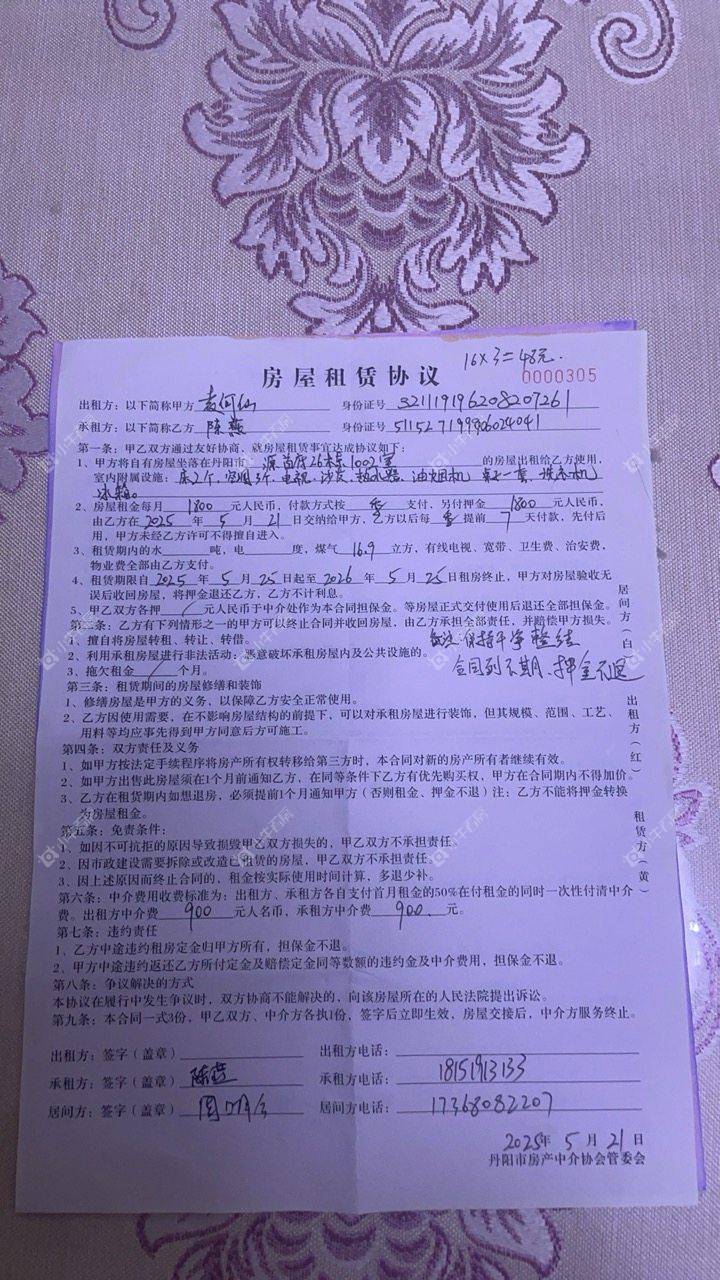 16×3=48元.
房屋租赁协议
0000305
出租方：以下简称甲方 袁何仙 身份证号 321119196208207261
承租方：以下简称乙方 陈燕 身份证号
第一条：甲乙双方通过友好协商，就房屋租赁事宜达成协议如下：
1、甲方将自有房屋坐落在丹阳市 源首府26栋1002室 的房屋出租给乙方使用，
室内附属设施：床2个，空调3个，电视，沙发，热水器，油烟机，桌七一套，洗衣机
冰箱。
2、房屋租金每月 1800 元人民币，付款方式按 季 支付，另付押金 1800 元人民币，
由乙方在 2025 年 5 月 21 日交纳给甲方，乙方以后每 季 提前 7 天付款，先付后
用，甲方未经乙方许可不得擅自进入。
3、租赁期内的水 吨，电 度，煤气 16.9 立方，有线电视、宽带、卫生费、治安费，
物业费全部由乙方支付。
4、租赁期限自 2025 年 5 月 25 日起至 2026 年 5 月 25 日租房终止，甲方对房屋验收无
误后收回房屋，将押金退还乙方，乙方不计利息。
5、甲乙双方各押 / 元人民币于中介处作为本合同担保金。等房屋正式交付使用后退还全部担保金。
第二条：乙方有下列情形之一的甲方可以终止合同并收回房屋，由乙方承担全部责任，并赔偿甲方损失。
1、擅自将房屋转租、转让、转借。
保持干净整洁
2、利用承租房屋进行非法活动，恶意破坏承租房屋内及公共设施的。
合同到不期，押金不退
3、拖欠租金 / 个月。
第三条：租赁期间的房屋修缮和装饰
1、修缮房屋是甲方的义务，以保障乙方安全正常使用。
2、乙方因使用需要，在不影响房屋结构的前提下，可以对承租房屋进行装饰，但其规模、范围、工艺、
用料等均应事先得到甲方同意后方可施工。
第四条：双方责任及义务
1、如甲方按法定手续程序将房产所有权转移给第三方时，本合同对新的房产所有者继续有效。
2、如甲方出售此房屋须在1个月前通知乙方，在同等条件下乙方有优先购买权，甲方在合同期内不得加价。
3、乙方在租赁期内如想退房，必须提前1个月通知甲方（否则租金、押金不退）注：乙方不能将押金转换
为房屋租金。
第五条：免责条件：
1、如因不可抗拒的原因导致损毁甲乙双方损失的，甲乙双方不承担责任。
2、因市政建设需要拆除或改造已租赁的房屋，甲乙双方不承担责任。
3、因上述原因而终止合同的，租金按实际使用时间计算，多退少补。
第六条：中介费用收费标准为：出租方、承租方各自支付首月租金的50%在付租金的同时一次性付清中介
费。出租方中介费 900 元人名币，承租方中介费 900. 元。
第七条：违约责任
1、乙方中途违约租房定金归甲方所有，担保金不退。
2、甲方中途违约返还乙方所付定金及赔偿定金同等数额的违约金及中介费用，担保金不退。
第八条：争议解决的方式
本协议在履行中发生争议时，双方协商不能解决的，向该房屋所在的人民法院提出诉讼。
第九条：本合同一式3份，甲乙双方、中介方各执1份，签字后立即生效，房屋交接后，中介方服务终止。
居间方（白）
出租方（红）
租赁方（黄）
出租方：签字（盖章） 出租方电话：
承租方：签字（盖章） 陈燕 承租方电话： 18151913133
居间方：签字（盖章） 周明 居间方电话： 17368082207
2025年 5 月 21 日
丹阳市房产中介协会管委会